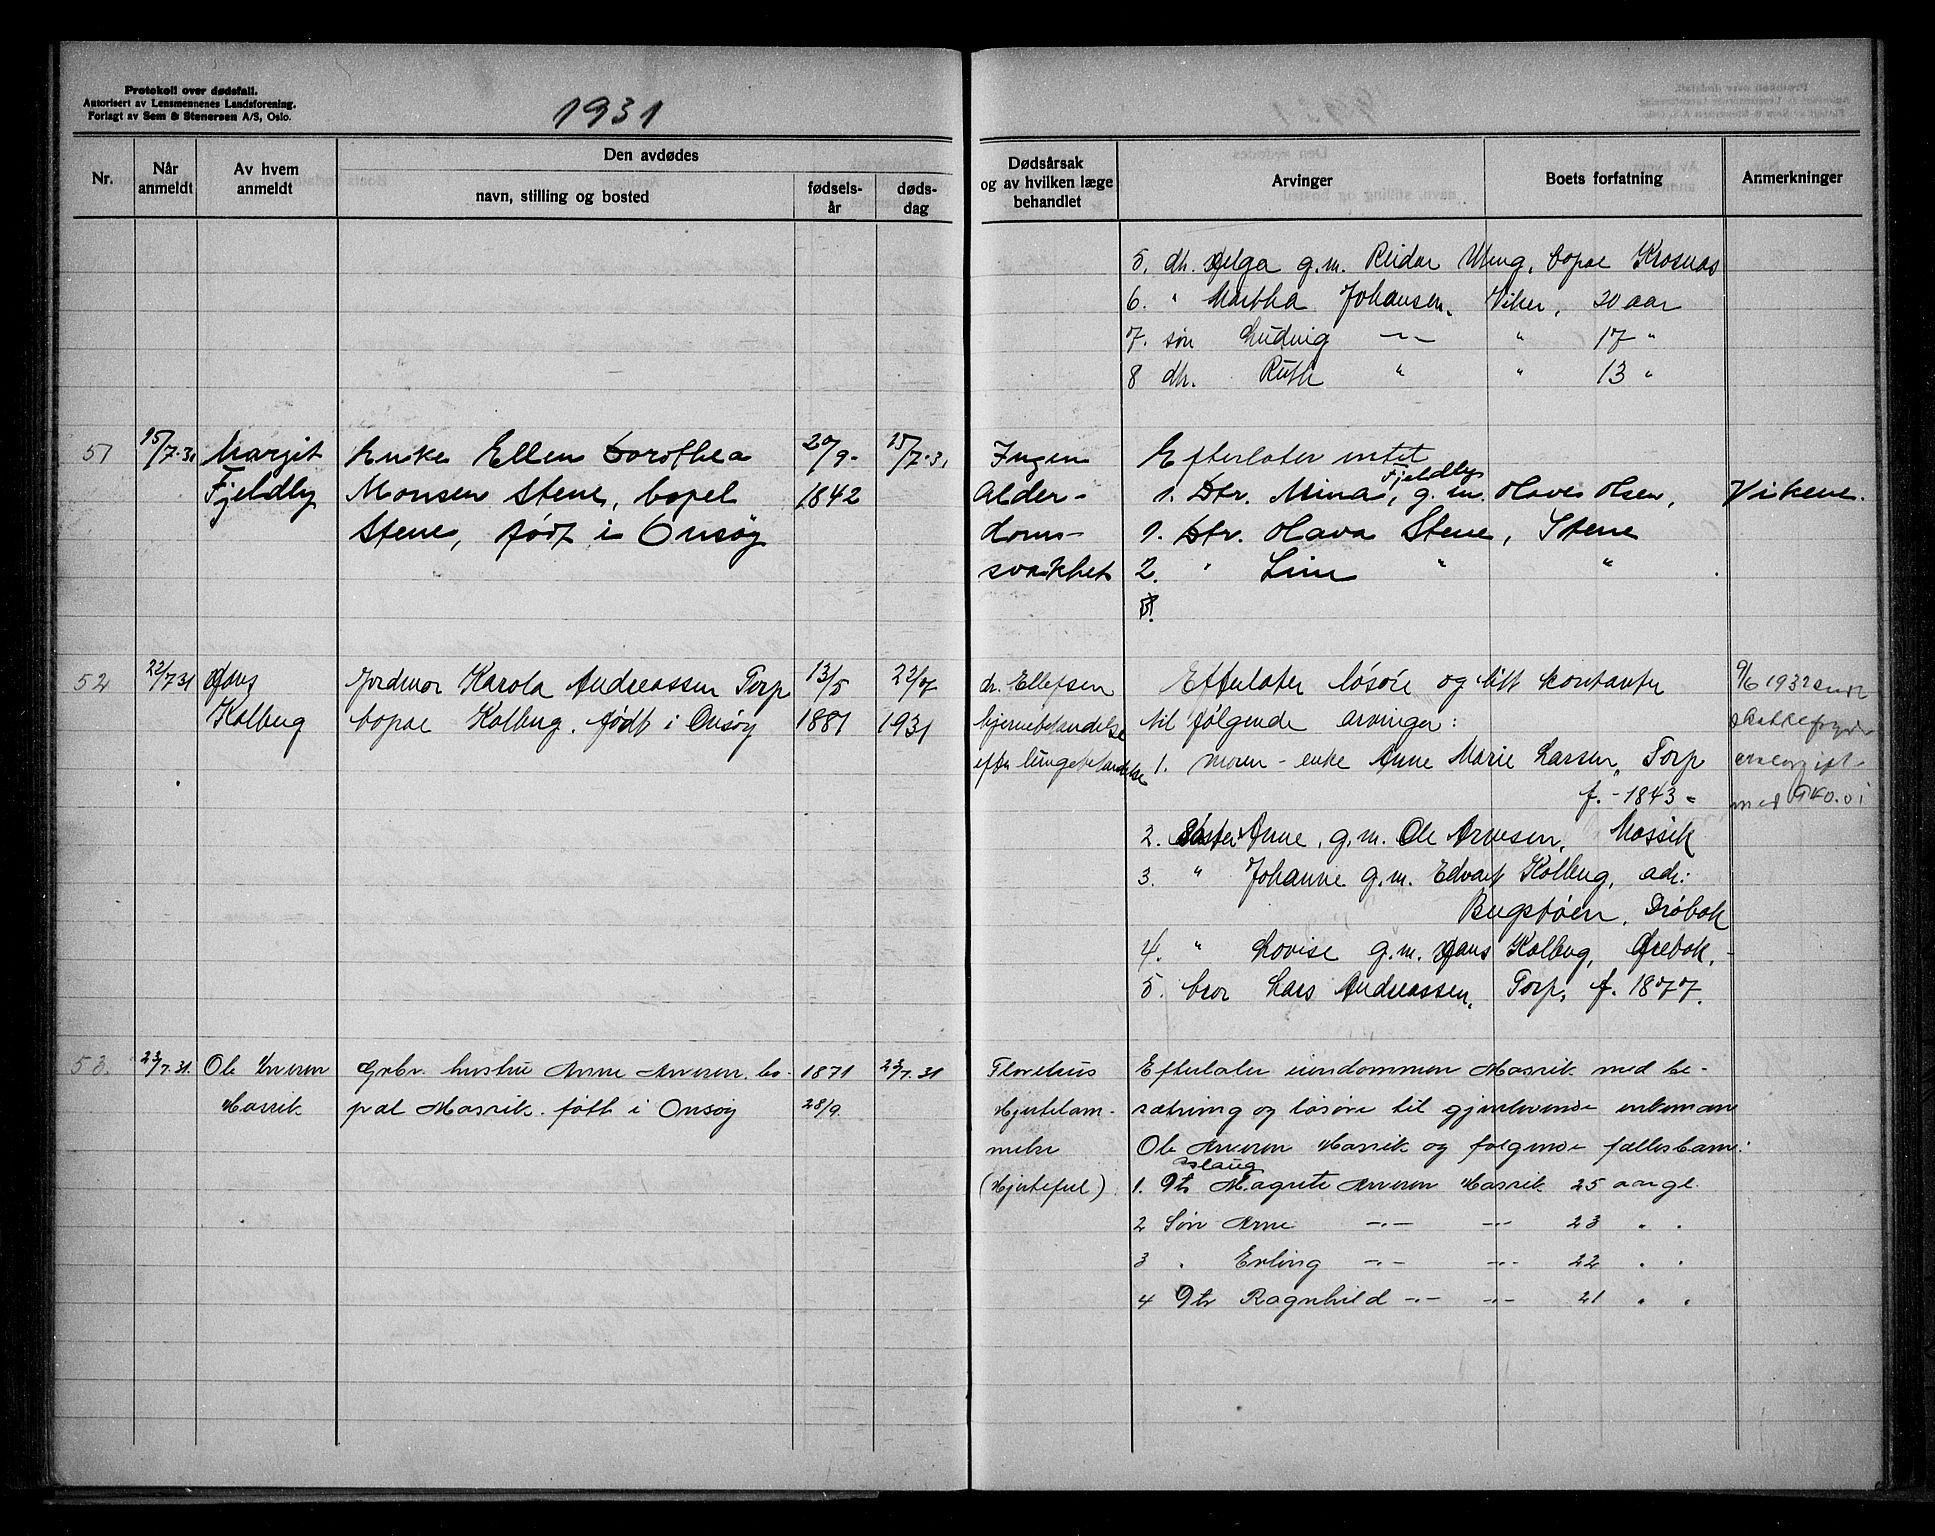 Protokoll over dødsfall.
Autorisert av Lensmennenes Landsforening.
Forlagt av Sem & Stenersen A/S, Oslo.
1931
Nr.
Når anmeldt
Av hvem anmeldt
Den avdødes
navn, stilling og bosted
fødsels-år
døds-dag
Dødsårsak og av hvilken læge behandlet
Arvinger
Boets forfatning
Anmerkninger
5. dtr. Helga g.m. Reidar, bopæl Krosnæs
6. " Martha Johansen, Viker, 20 aar
7. søn Ludvig —"— " 17 "
8 dtr. Ruth " " 13 "
51
15/7-31
Margit
Fjeldly
Enke Ellen Dorothea
Monsen Stene, bopel
Stene, født i Onsøy
20/9-
1842
15/7-31
Ingen
Alder-
doms-
svakhet
Efterlater intet
Fjeldly
1. Dtr. Mina, g.m. Olsen, Vikene.
1. Dtr. Hava Stene, Stene
2. " Lina " "
52
22/7 31
Hans
Kolberg
Jordmor Karola Andreassen Torp
bopæl Kolberg. født i Onsøy
13/5
1881
22/7
1931
dr. Ellefsen
hjernebetændelse
efter lungebetændelse
Efterlater løsøre og litt kontanter
til følgende arvinger:
1. moren - enke Anne Marie Larsen, Torp
f. - 1843 -
2. Søster Anne, g.m. Ole Arnesen, Massik
3. " Johanne g.m. Edvart Kolberg, adr:
Drøbak
4. " Lovise g.m. Hans Kolberg, Ørebæk.
5. bror Lars Andreassen, Torp, f. 1877.
9/6 1932 sendt
med
53.
23/7.31.
Ole Arnesen
Massik
Grbr. hustru Anne Arnesen. bo-
pæl Massik. født i Onsøy
1871
28/9
23/7.31
Hjertelam-
melse
(Hjertefeil)
Efterlater eiendommen Massik med be-
sætning og løsøre til gjenlevende enkemann
Ole Arnesen Massik og følgende fællesbarn:
Aslaug
1. Dtr Magrete Arnesen Massik 25 aar gl.
2 Søn Arne —"— —"— 23 " "
3 " Erling —"— —"— 22 " "
4 Dtr Ragnhild —"— —"— 21 " "